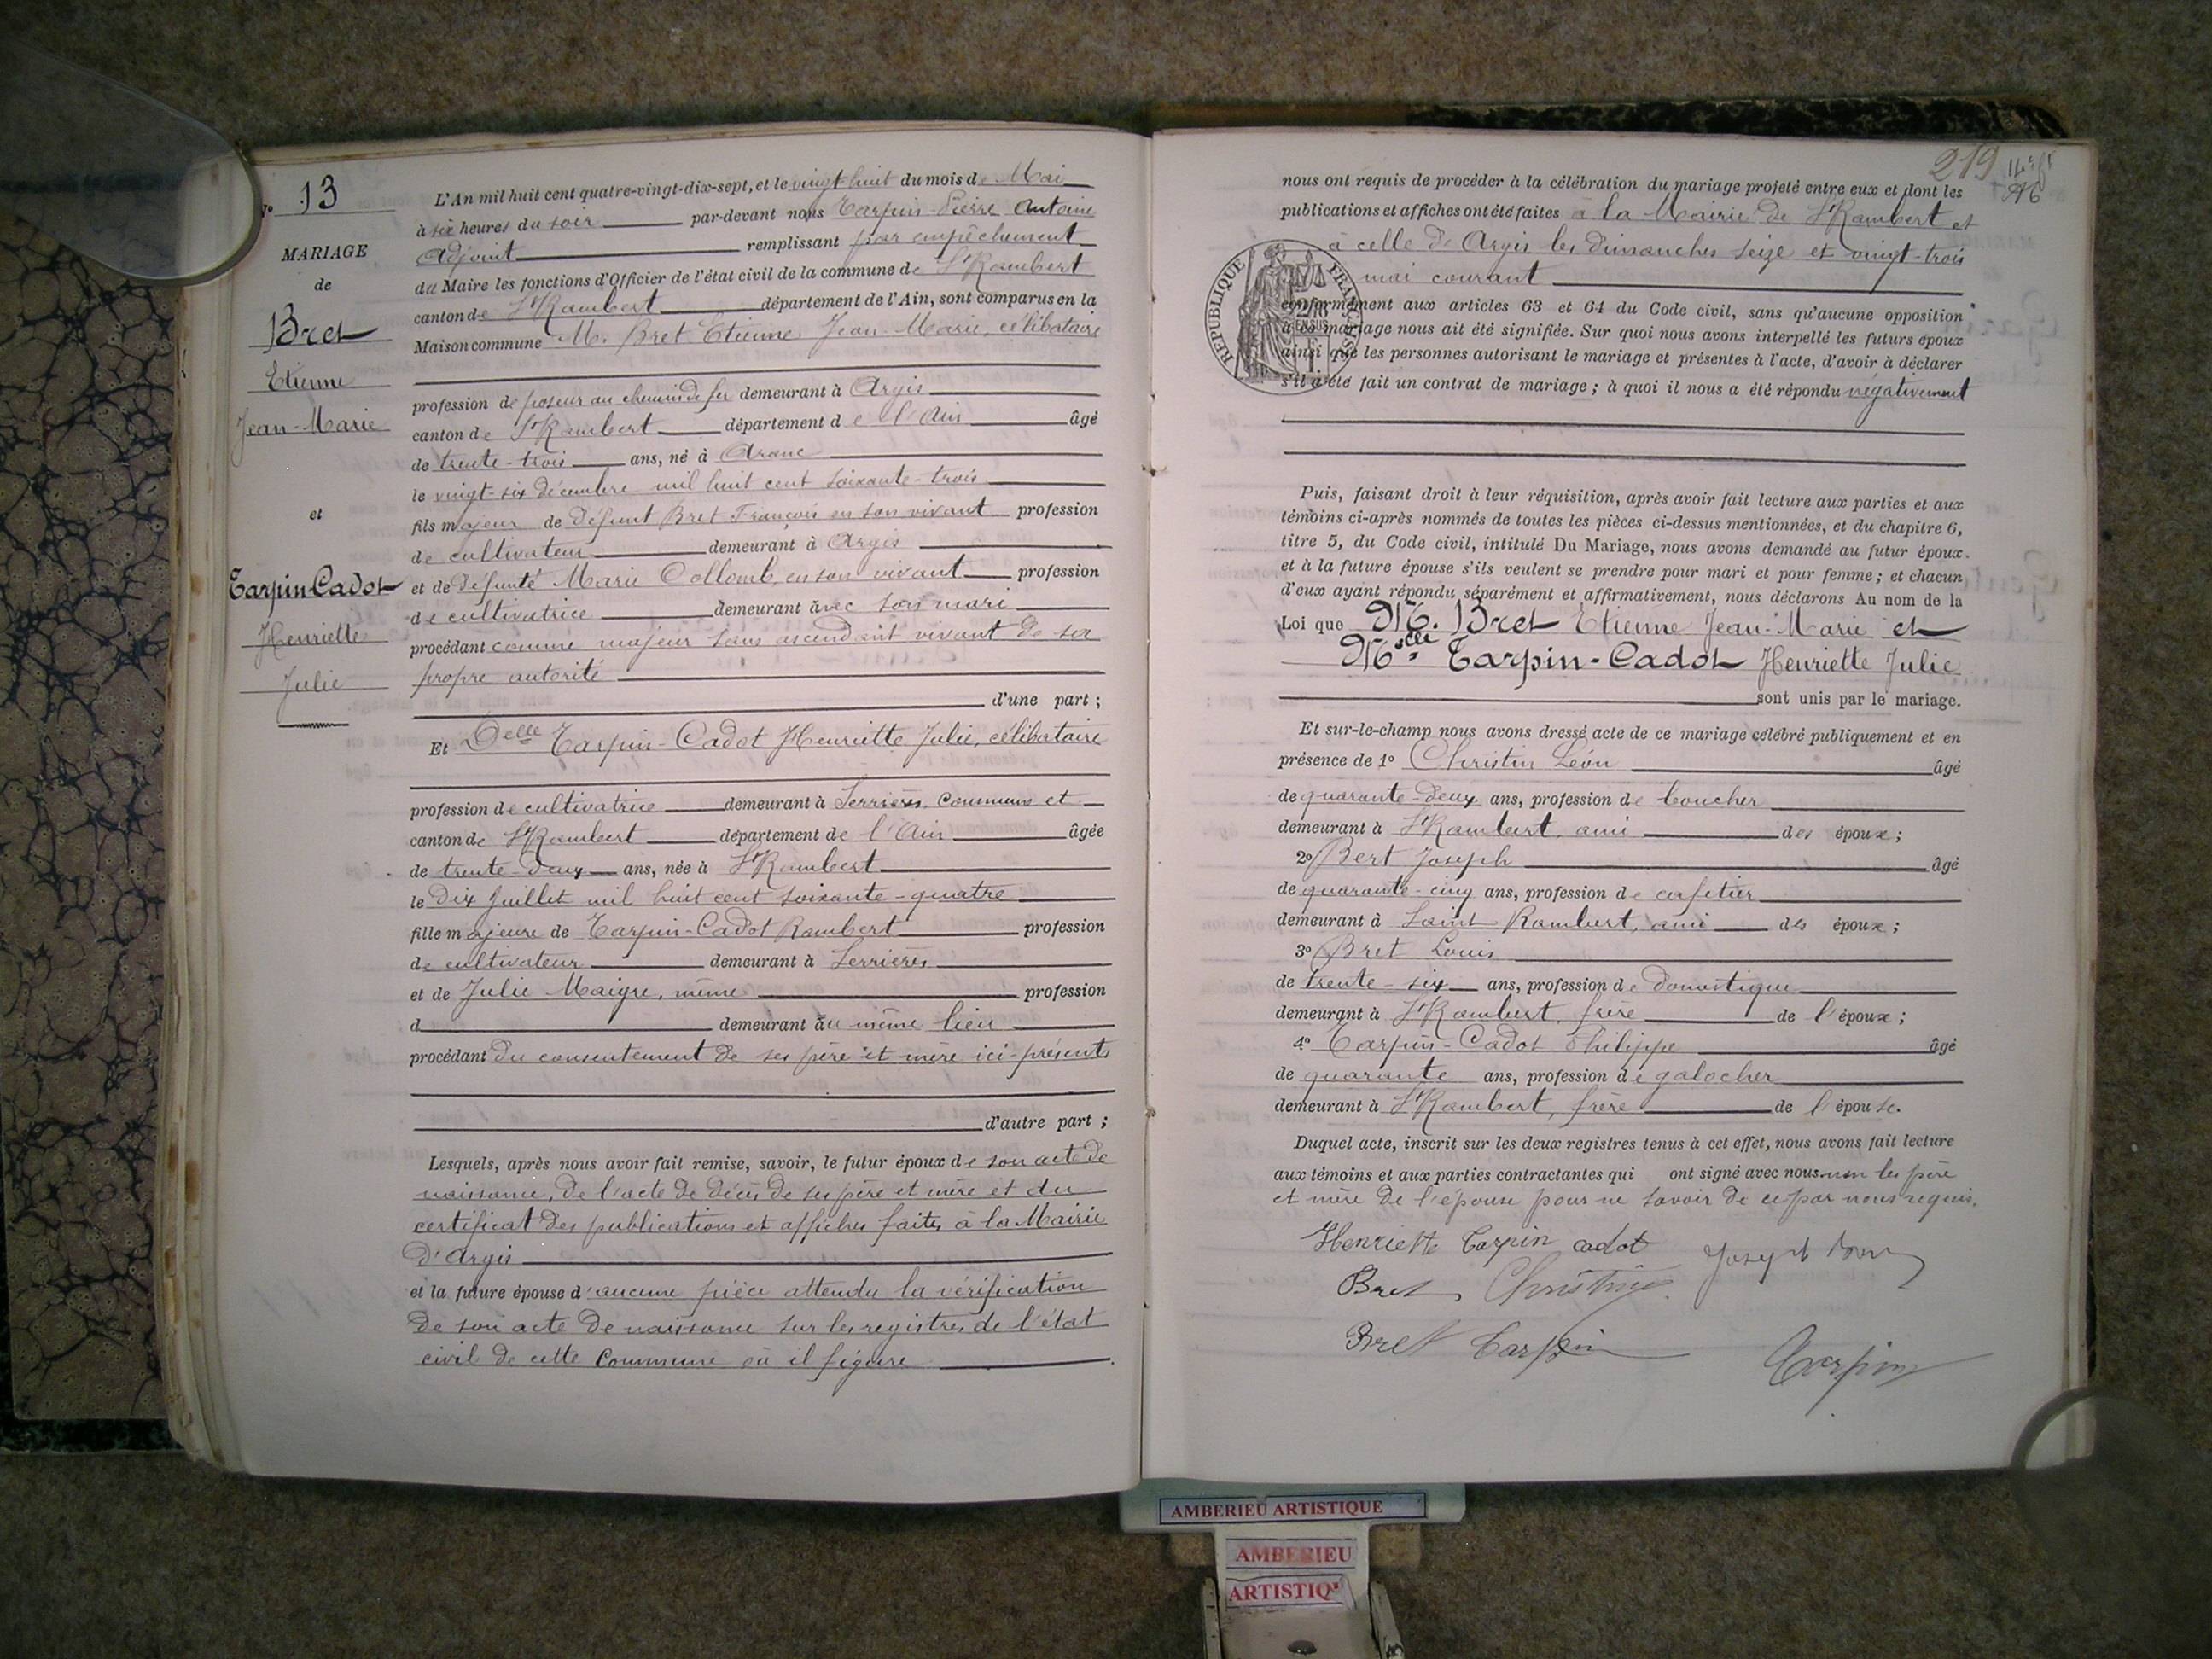 N° 13
MARIAGE
de
Bret
Etienne
Jean-Marie
et
Tarpin-Cadot
Henriette
Julie
L'An mil huit cent quatre-vingt-dix-sept, et le vingt huit du mois de Mai
à six heures du soir par-devant nous Tarpin Pierre Antoine
Adjoint remplissant par empêchement
du Maire les fonctions d'Officier de l'état civil de la commune de St Rambert
canton de St Rambert département de l'Ain, sont comparus en la
Maison commune M. Bret Etienne Jean-Marie, célibataire
profession de poseur au chemin de fer demeurant à Argis
canton de St Rambert département de l'Ain âgé
de trente-trois ans, né à Aranc
le vingt-six décembre mil huit cent soixante-trois
fils majeur de défunt Bret François en son vivant profession
de cultivateur demeurant à Argis
et de défunté Marie Collomb, en son vivant profession
de cultivatrice demeurant avec son mari
procédant comme majeur sans ascendant vivant de sa
propre autorité
d'une part ;
Et Delle Tarpin-Cadot Henriette Julie, célibataire
profession de cultivatrice demeurant à Serrières, commune et
canton de St Rambert département de l'Ain âgée
de trente-deux ans, née à St Rambert
le dix Juillet mil huit cent soixante-quatre
fille majeure de Tarpin-Cadot Rambert profession
de cultivateur demeurant à Serrières
et de Julie Maigre, même profession
d demeurant au même lieu
procédant du consentement de ses père et mère ici-présents
d'autre part ;
Lesquels, après nous avoir fait remise, savoir, le futur époux de son acte de
naissance, de l'acte de décès de ses père et mère et du
certificat des publications et affiches faites à la Mairie
d'Argis
et la future épouse d'aucune pièce attendu la vérification
de son acte de naissance sur les registres de l'état
civil de cette commune où il figure
219
nous ont requis de procéder à la célébration du mariage projeté entre eux et dont les
publications et affiches ont été faites à la Mairie de St Rambert et
à celle d'Argis les dimanches seize et vingt-trois
mai courant
REPUBLIQUE FRANÇAISE
conformément aux articles 63 et 64 du Code civil, sans qu'aucune opposition
à ce mariage nous ait été signifiée. Sur quoi nous avons interpellé les futurs époux
ainsi que les personnes autorisant le mariage et présentes à l'acte, d'avoir à déclarer
s'il a été fait un contrat de mariage ; à quoi il nous a été répondu négativement
Puis, faisant droit à leur réquisition, après avoir fait lecture aux parties et aux
témoins ci-après nommés de toutes les pièces ci-dessus mentionnées, et du chapitre 6,
titre 5, du Code civil, intitulé Du Mariage, nous avons demandé au futur époux
et à la future épouse s'ils veulent se prendre pour mari et pour femme ; et chacun
d'eux ayant répondu séparément et affirmativement, nous déclarons Au nom de la
Loi que M. Bret Etienne Jean-Marie et
Melle Tarpin-Cadot Henriette Julie
sont unis par le mariage.
Et sur-le-champ nous avons dressé acte de ce mariage célébré publiquement et en
présence de 1° Christin Léon âgé
de quarante-deux ans, profession de boucher
demeurant à St Rambert, ami des époux ;
2° Bert Joseph âgé
de quarante-cinq ans, profession de cafetier
demeurant à Saint Rambert, ami des époux ;
3° Bret Louis
de trente-six ans, profession de domestique
demeurant à St Rambert, frère de l'époux ;
4° Tarpin-Cadot Philippe âgé
de quarante ans, profession de galocher
demeurant à St Rambert, frère de l'épouse.
Duquel acte, inscrit sur les deux registres tenus à cet effet, nous avons fait lecture
aux témoins et aux parties contractantes qui ont signé avec nous non les père
et mère de l'épouse pour ne savoir de ce par nous requis.
Henriette Tarpin cadot Joseph
Bret Christin
Bret Tarpin Tarpin
AMBERIEU ARTISTIQUE
AMBERIEU
ARTISTIQ